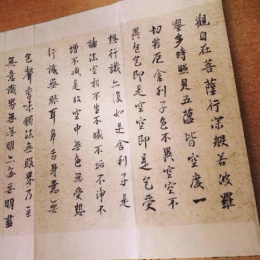 觀自在菩薩行深般若波羅
蜜多時照見五蘊皆空度一
切苦厄舍利子色不異空空不
異色色即是空空即是色受
想行識亦復如是舍利子是
諸法空相不生不滅不垢不淨不
增不減是故空中無色無受想
行識無眼耳鼻舌身意無
色聲香味觸法無眼界乃至
無意識界無無明亦無無明盡